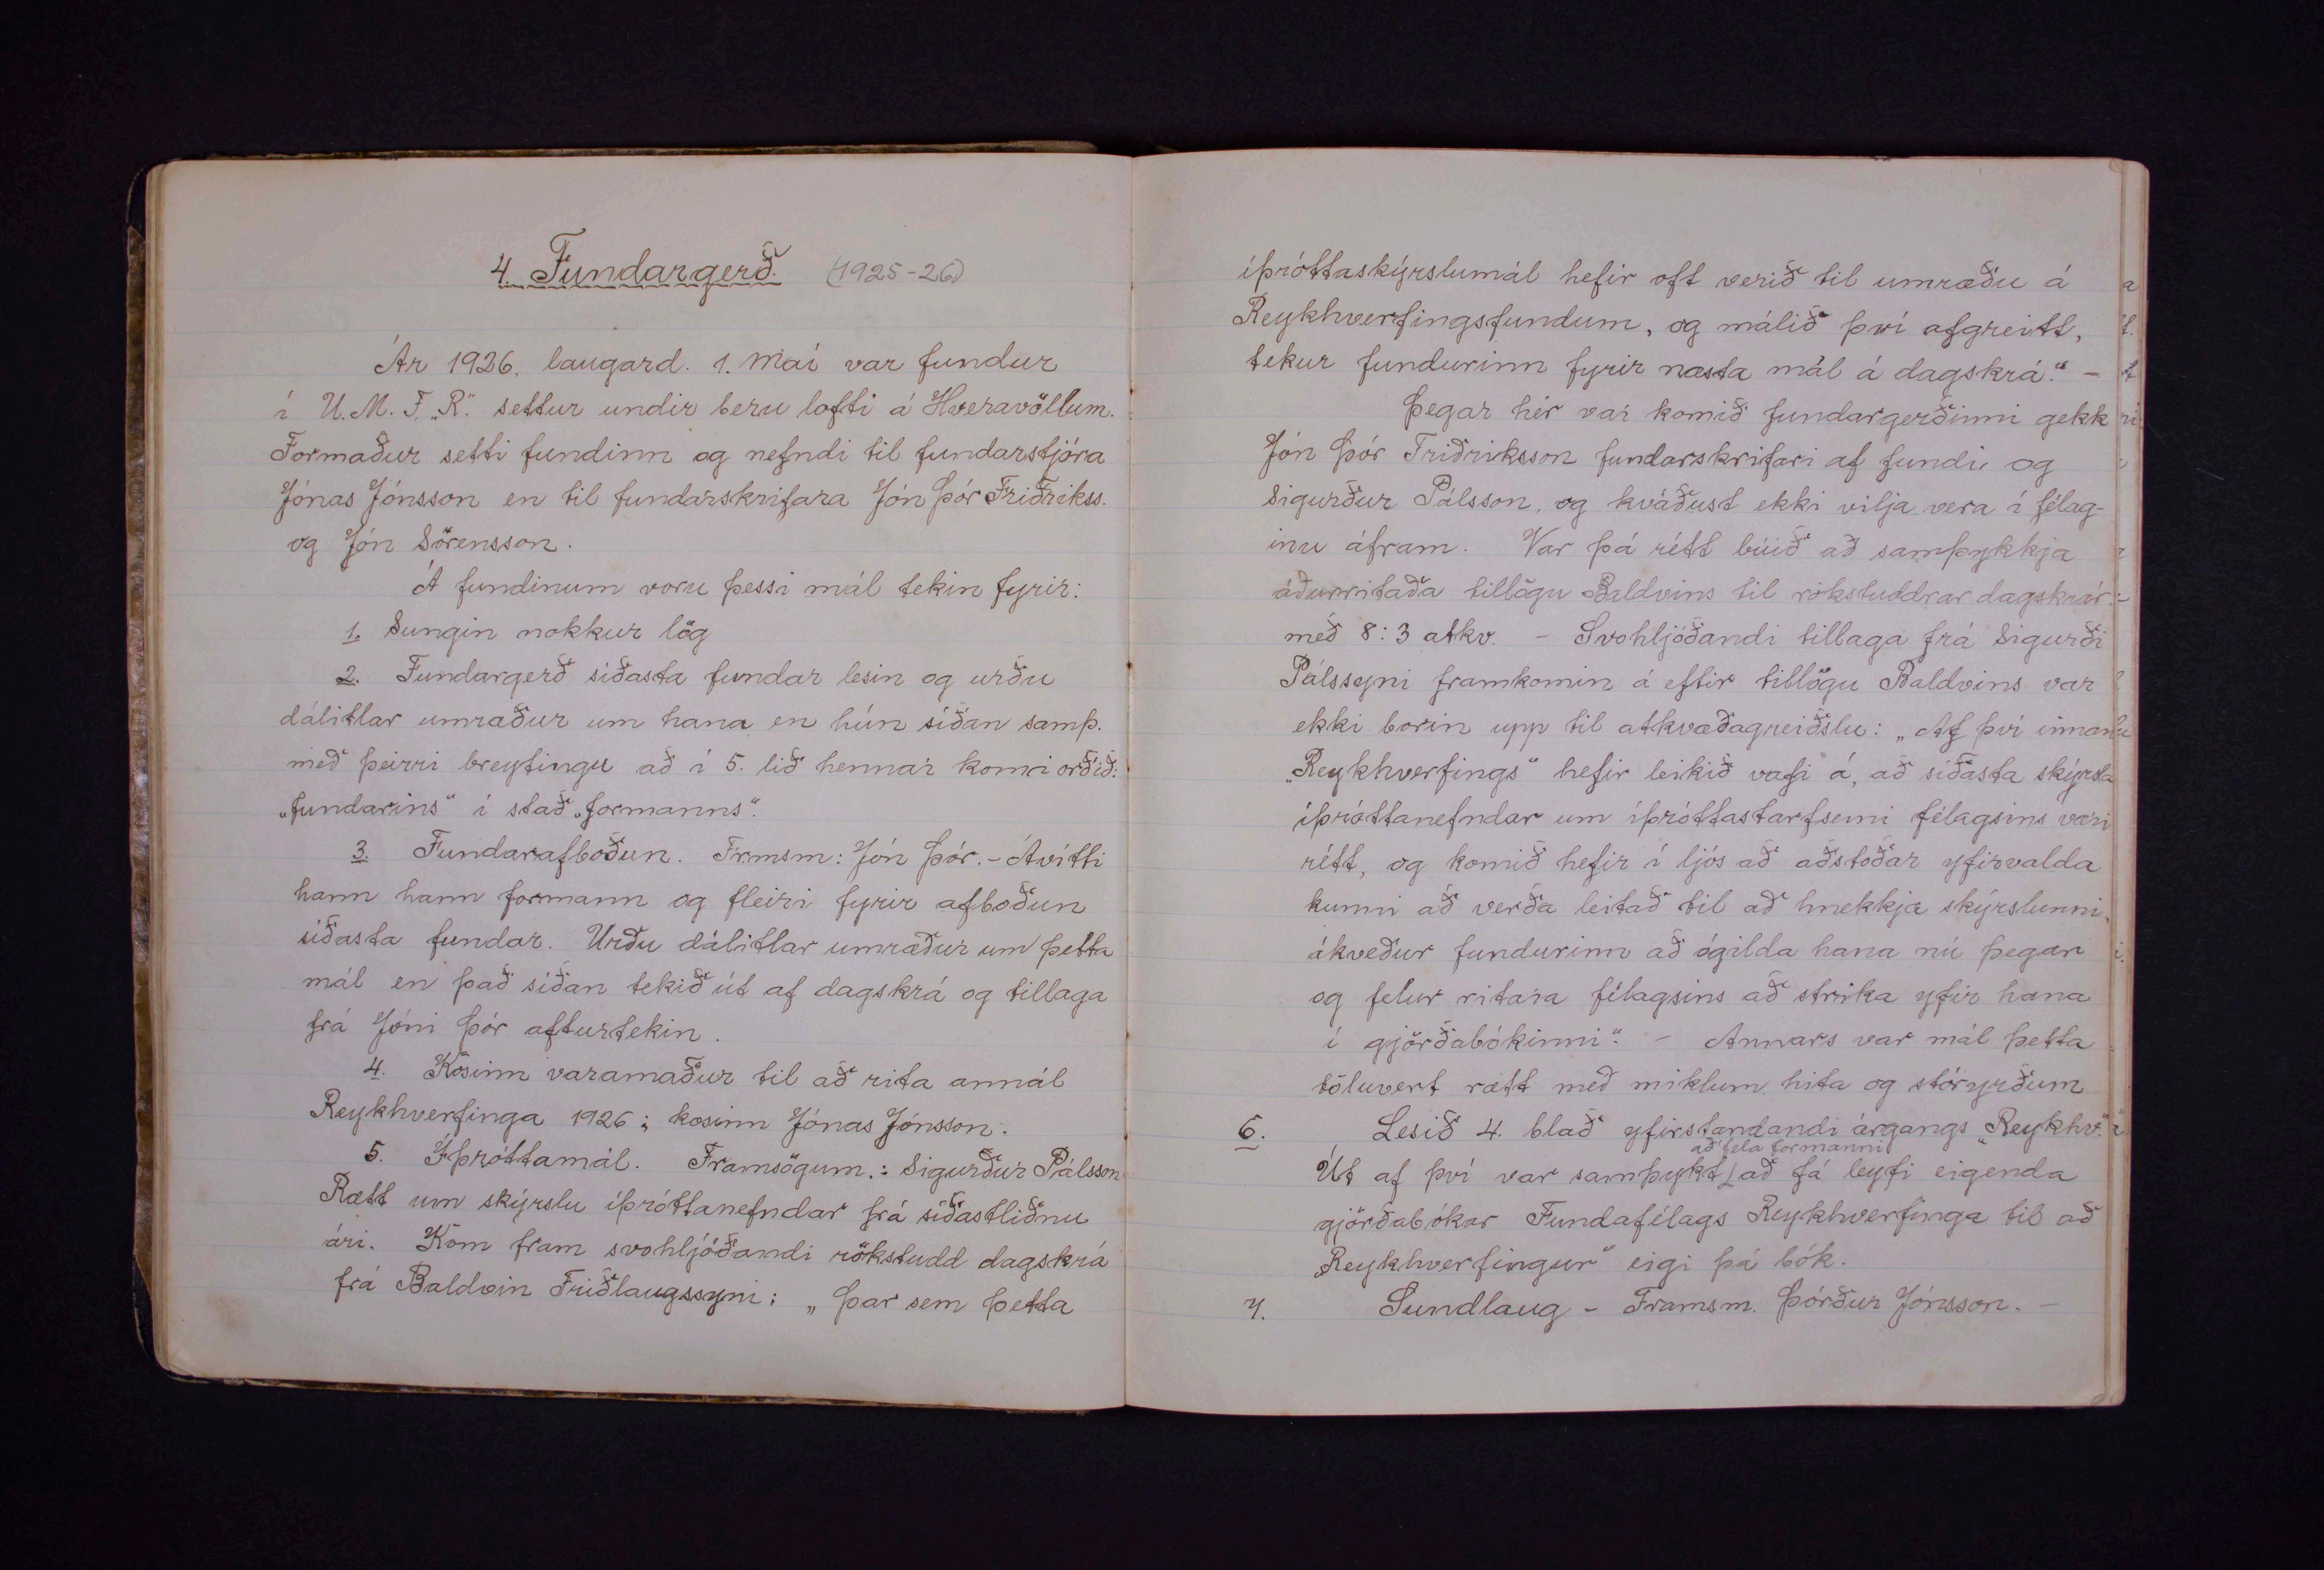 4. Fundargerð. (1925-26)
Ár 1926. laugard. 1. maí var fundur
í U.M.F. „R". settur undir beru lofti á Hveravöllum.
Formaður setti fundinn og nefndi til fundarstjóra
Jónas Jónsson en til fundarskrifara Jón Þór Friðrikss.
og Jón Sörensson.
Á fundinum voru þessi mál tekin fyrir:
1. Sungin nokkur lög
2. Fundargerð síðasta fundar lesin og urðu
dálitlar umræður um hana en hún síðan samþ.
með þeirri breytingu að í 5. lið hennar komi orðið:
„fundarins" í stað „formanns".
3. Fundarafboðun. Frmsm: Jón Þór. - Ávítti
hann hann formann og fleiri fyrir afboðun
síðasta fundar. Urðu dálitlar umræður um þetta
mál en það síðan tekið út af dagskrá og tillaga
frá Jóni Þór afturtekin.
4. Kosinn varamaður til að rita annál
Reykhverfinga 1926; kosinn Jónas Jónsson.
5. Íþróttamál. Framsögum.: Sigurður Pálsson
Rætt um skýrslu íþróttanefndar frá síðastliðnu
ári. Kom fram svohljóðandi rökstudd dagskrá
frá Baldvin Friðlaugssyni: „Þar sem þetta
íþróttaskýrslumál hefir oft verið til umræðu á
Reykhverfingsfundum, og málið því afgreitt,
tekur fundurinn fyrir næsta mál á dagskrá." -
Þegar hér var komið fundargerðinni gekk
Jón Þór Friðriksson fundarskrifari af fundi og
Sigurður Pálsson, og kváðust ekki vilja vera í félag-
inu áfram. Var þá rétt búið að samþykkja
áðurritaða tillögu Baldvins til rökstuddrar dagskrár. -
með 8:3 atkv. - Svohljóðandi tillaga frá Sigurði
Pálssyni framkomin á eftir tillögu Baldvins var
ekki borin upp til atkvæðagreiðslu: „Af því innan
„Reykhverfings" hefir leikið vafi á, að síðasta skýrsla
íþróttanefndar um íþróttastarfsemi félagsins væri
rétt, og komið hefir í ljós að aðstoðar yfirvalda
kunni að verða leitað til að hnekkja skýrslunni,
ákveður fundurinn að ógilda hana nú þegar
og felur ritara félagsins að strika yfir hana
í gjörðabókinni". - Annars var mál þetta
töluvert rætt með miklum hita og stóryrðum
6. Lesið 4. blað yfirstandandi árgangs „Reykhv."
að fela formanni
Út af því var samþykt að fá leyfi eigenda
gjörðabókar Fundafélags Reykhverfinga til að
„Reykhverfingur" eigi þá bók.
7. Sundlaug - Framsm. Þórður Jónsson. -